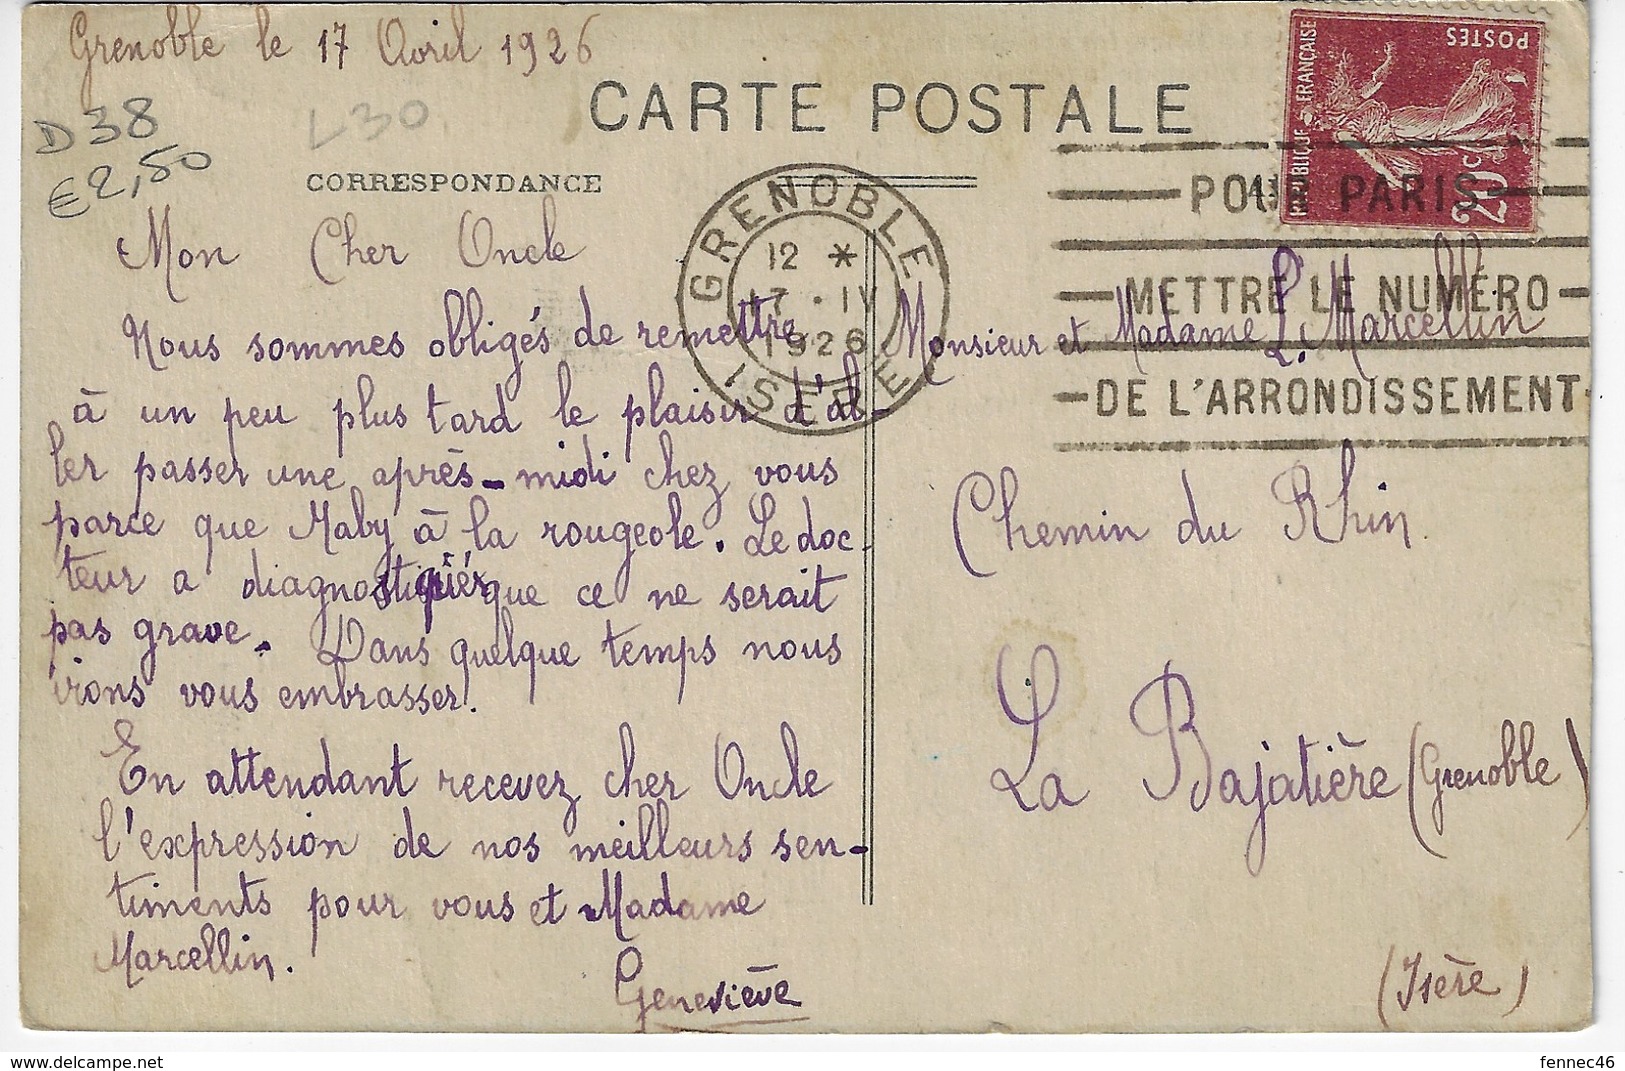 Grenoble le 17 Avril 1926
D38
€2,50
L30
CARTE POSTALE
CORRESPONDANCE
Mon Cher Oncle
Nous sommes obligés de remettre
à un peu plus tard le plaisir d'al-
ler passer une après-midi chez vous
parce que Maby à la rougeole. Le doc-
teur a diagnostiquér que ce ne serait
pas grave. Dans quelque temps nous
irons vous embrasser.
En attendant recevez cher Oncle
l'expression de nos meilleurs sen-
timents pour vous et Madame
Marcellin.
Geneviève
GRENOBLE
12 *
17 · IV
1926
ISERE
REPUBLIQUE FRANÇAISE
POSTES
20c
POUR PARIS
METTRE LE NUMÉRO
DE L'ARRONDISSEMENT
Monsieur et Madame L. Marcellin
Chemin du Rhin.
La Bajatière (Grenoble)
(Isère)
delcampe.net
fennec46